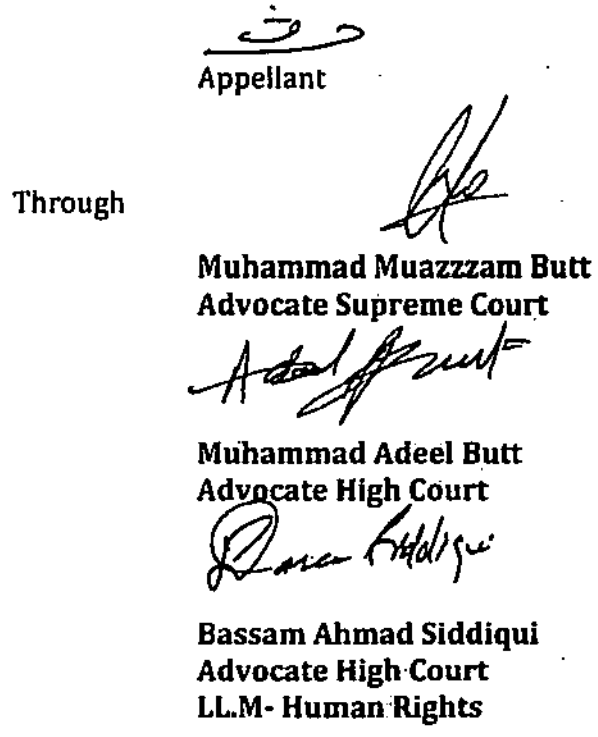 Appellant
Through
Muhammad Muazzzam Butt
Advocate Supreme Court
Adeel Butt
Muhammad Adeel Butt
Advocate High Court
Siddiqui
Bassam Ahmad Siddiqui
Advocate High Court
LL.M- Human Rights